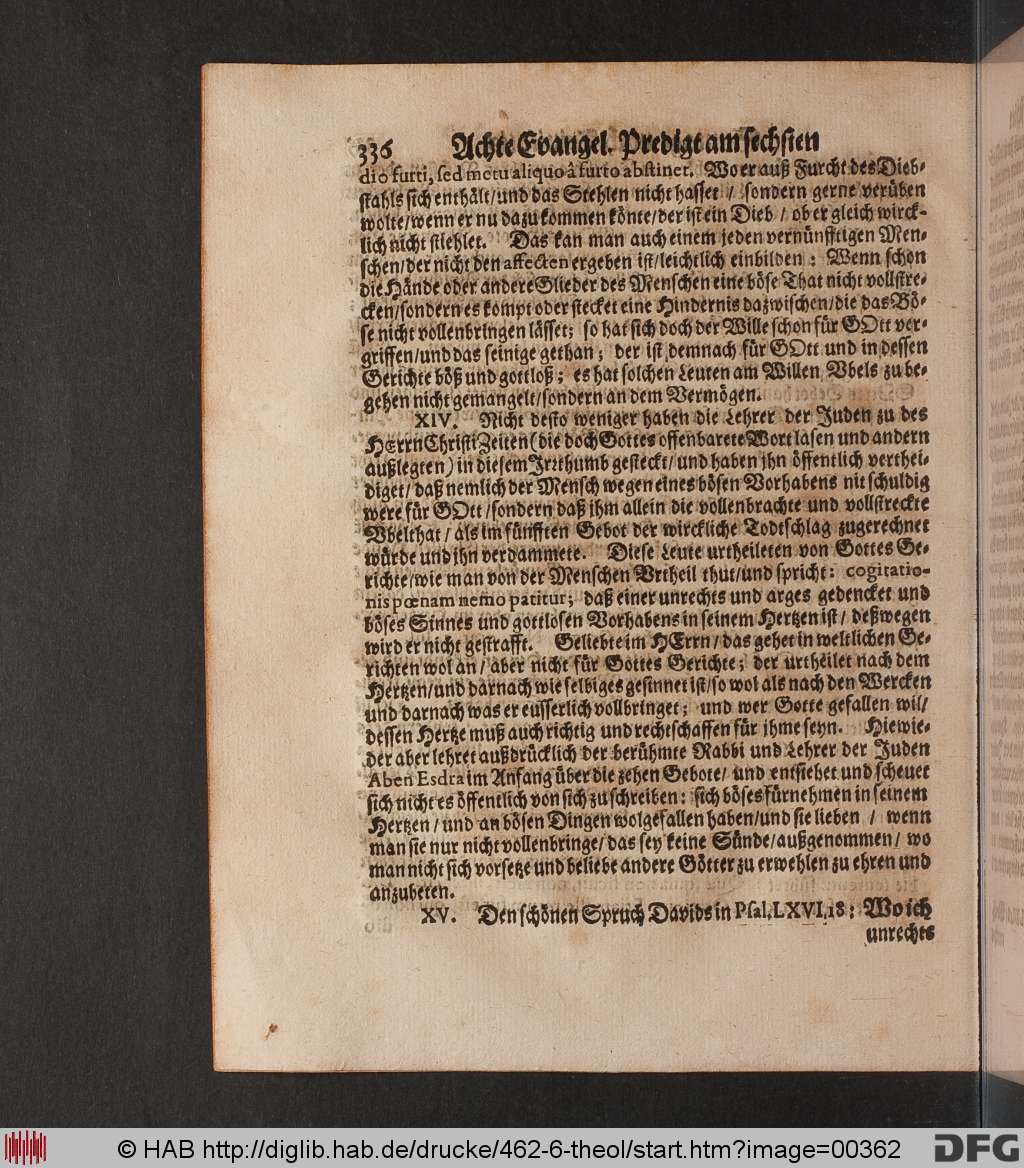 336 Achte Evangel. Predigt am sechsten
dio furti, sed metu aliquo â furto abstinet. Wo er auß Furcht des Dieb-
stahls sich enthält/und das Stehlen nicht hasset / sondern gerne verüben
wolte/wenn er nu dazu kommen könte/der ist ein Dieb / ob er gleich wirck-
lich nicht stiehlet. Das kan man auch einem jeden vernünfftigen Men-
schen/der nicht den affecten ergeben ist/leichtlich einbilden: Wenn schon
die Hände oder andere Glieder des Menschen eine böse That nicht vollstre-
cken/sondern es kompt oder stecket eine Hindernis dazwischen/die das Bö-
se nicht vollenbringen lässet; so hat sich doch der Wille schon für GOtt ver-
griffen/und das seinige gethan; der ist demnach für GOtt und in dessen
Gerichte böß und gottloß; es hat solchen Leuten am Willen Vbels zu be-
gehen nicht gemangelt/sondern an dem Vermögen.
XIV. Nicht desto weniger haben die Lehrer der Juden zu des
HErrn Christi Zeiten (die doch Gottes offenbarete Wort lasen und andern
außlegten) in diesem Irrthumb gesteckt/und haben jhn öffentlich verthei-
diget/daß nemlich der Mensch wegen eines bösen Vorhabens nit schuldig
were für GOtt/sondern daß jhm allein die vollenbrachte und vollstreckte
Vbelthat/als im fünfften Gebot der wirckliche Todtschlag zugerechnet
würde und jhn verdammete. Diese Leute urtheileten von Gottes Ge-
richte/wie man von der Menschen Vrtheil thut/und spricht: cogitatio-
nis pœnam nemo patitur; daß einer unrechts und arges gedencket und
böses Sinnes und gottlosen Vorhabens in seinem Hertzen ist/ deßwegen
wird er nicht gestrafft. Geliebte im HErrn/das gehet in weltlichen Ge-
richten wol an/ aber nicht für Gottes Gerichte; der urtheilet nach dem
Hertzen/und darnach wie selbiges gesinnet ist/so wol als nach den Wercken
und darnach was er eusserlich vollbringet; und wer Gotte gefallen wil/
dessen Hertze muß auch richtig und rechtschaffen für jhme seyn. Hiewie-
der aber lehret außdrücklich der berühmte Rabbi und Lehrer der Juden
Aben Esdra im Anfang über die zehen Gebote/ und entsiehet und scheuet
sich nicht es öffentlich von sich zu schreiben: sich böses fürnehmen in seinem
Hertzen / und an bösen Dingen wolgefallen haben/und sie lieben / wenn
man sie nur nicht vollenbringe/das sey keine Sünde/außgenommen/ wo
man nicht sich vorsetze und beliebe andere Götter zu erwehlen zu ehren und
anzubeten.
XV. Den schönen Spruch Davids in Psal. LXVI, 18: Wo ich
unrechts
© HAB http://diglib.hab.de/drucke/462-6-theol/start.htm?image=00362
DFG